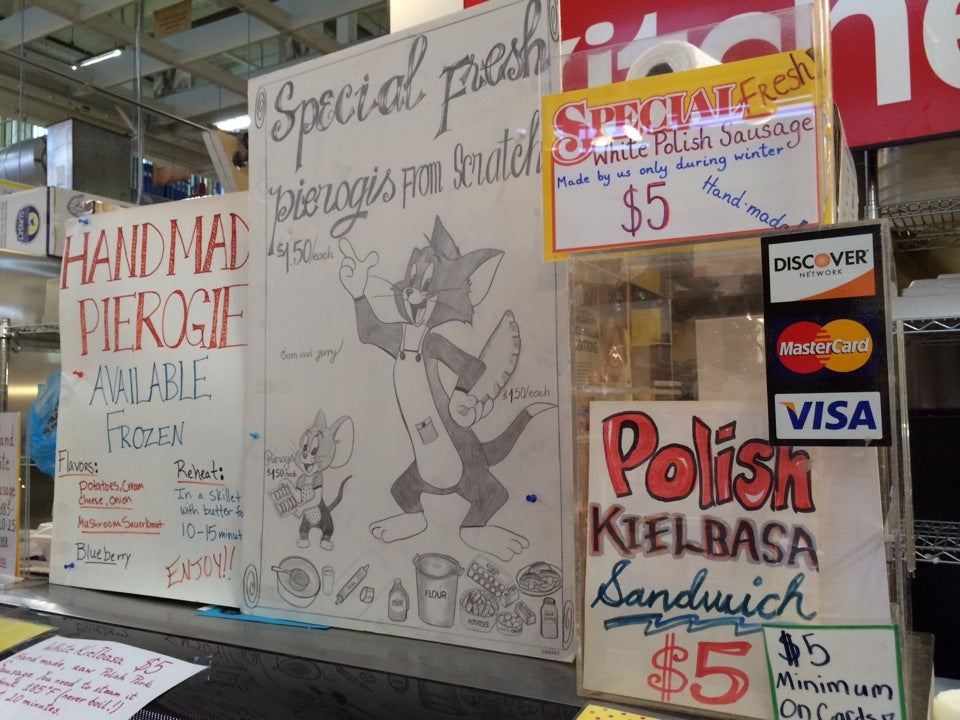 HANDMAD
PIEROGIE
AVAILABLE
FROZEN
Flavors:
Potatoes, Cream
Cheese, Onion
Mushroom Sauerkraut
Blueberry
Reheat:
In a skillet
with butter
10-15 minut
ENJOY!!
Special Fresh
pierogis From Scratch
$1.50/each
Tom and Jerry
$1.50/each
Pierogis
$1.50
MILK
FLOUR
POTATOES
itchen
SPECIAL Fresh!
White Polish Sausage
Made by us only during winter
$5
Hand-made
DISCOVER
NETWORK
MasterCard
VISA
Polish
KIELBASA
Sandwich
$5
$5
Minimum
On Cards
White Kielbasa $5
Hand made, raw Polish Pork
Sausage. You need to steam it
185°F (never boil!)
minutes.